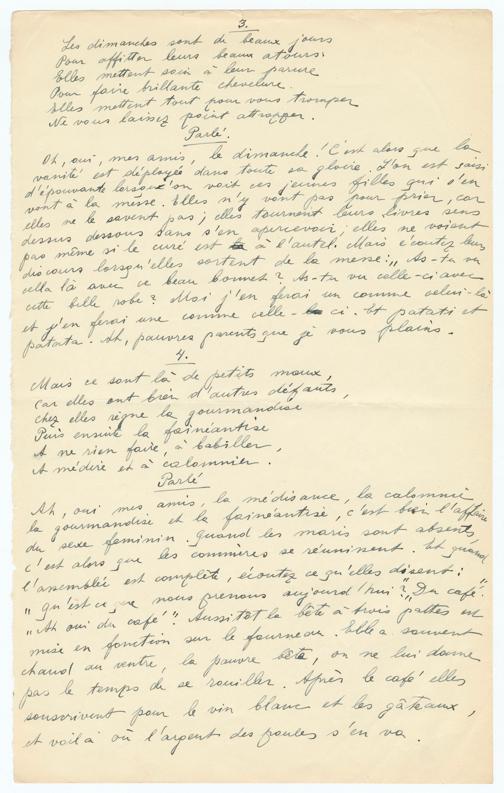 3.
Les dimanches sont de beaux jours
Pour affitter leurs beaux atours.
Elles mettent soin à leur parure
Pour faire brillante chevelure.
Elles mettent tout pour vous tromper
Ne vous laissez point attrapper.
Parlé.
Oh, oui, mes amis, le dimanche! C'est alors que la
vanité est déployée dans toute sa gloire. L'on est saisi
d'épouvante lorsqu'on voit ces jeunes filles qui s'en
vont à la messe. Elles n'y vont pas pour prier, car
elles ne le savent pas; elles tournent leurs livres sens
dessus dessous sans s'en apercevoir; elles ne voient
pas même si le curé est à l'autel. Mais écoutez leur
discours lorsqu'elles sortent de la messe: „As-tu vu
cella là avec ce beau bonnet? As-tu vu celle-ci avec
cette belle robe? Moi j'en ferai un comme celui-là
et j'en ferai une comme celle-ci. Et patati et
patata. Ah, pauvres parents que je vous plains.
4.
Mais ce sont là de petits maux,
Car elles ont bien d'autres défauts,
Chez elles règne la gourmandise
Puis ensuite la fainéantise
A ne rien faire, à babiller,
A médire et à calomnier.
Parlé
Ah, oui mes amis, la médisance, la calomnie
la gourmandise et la fainéantise, c'est bien l'affaire
du sexe feminin. Quand les maris sont absents,
c'est alors que les commères se réunissent. Et quand
l'assemblée est complète, écoutez ce qu'elles disent:
„qu'est ce que nous prenons aujourd'hui?" „Du café".
„Ah oui du café". Aussitôt la bête à trois pattes est
mise en fonction sur le fourneau. Elle a souvent
chaud au ventre, la pauvre bête, on ne lui donne
pas le temps de se rouiller. Après le café elles
souscrivent pour le vin blanc et les gâteaux,
et voilà où l'argent des poules s'en va.